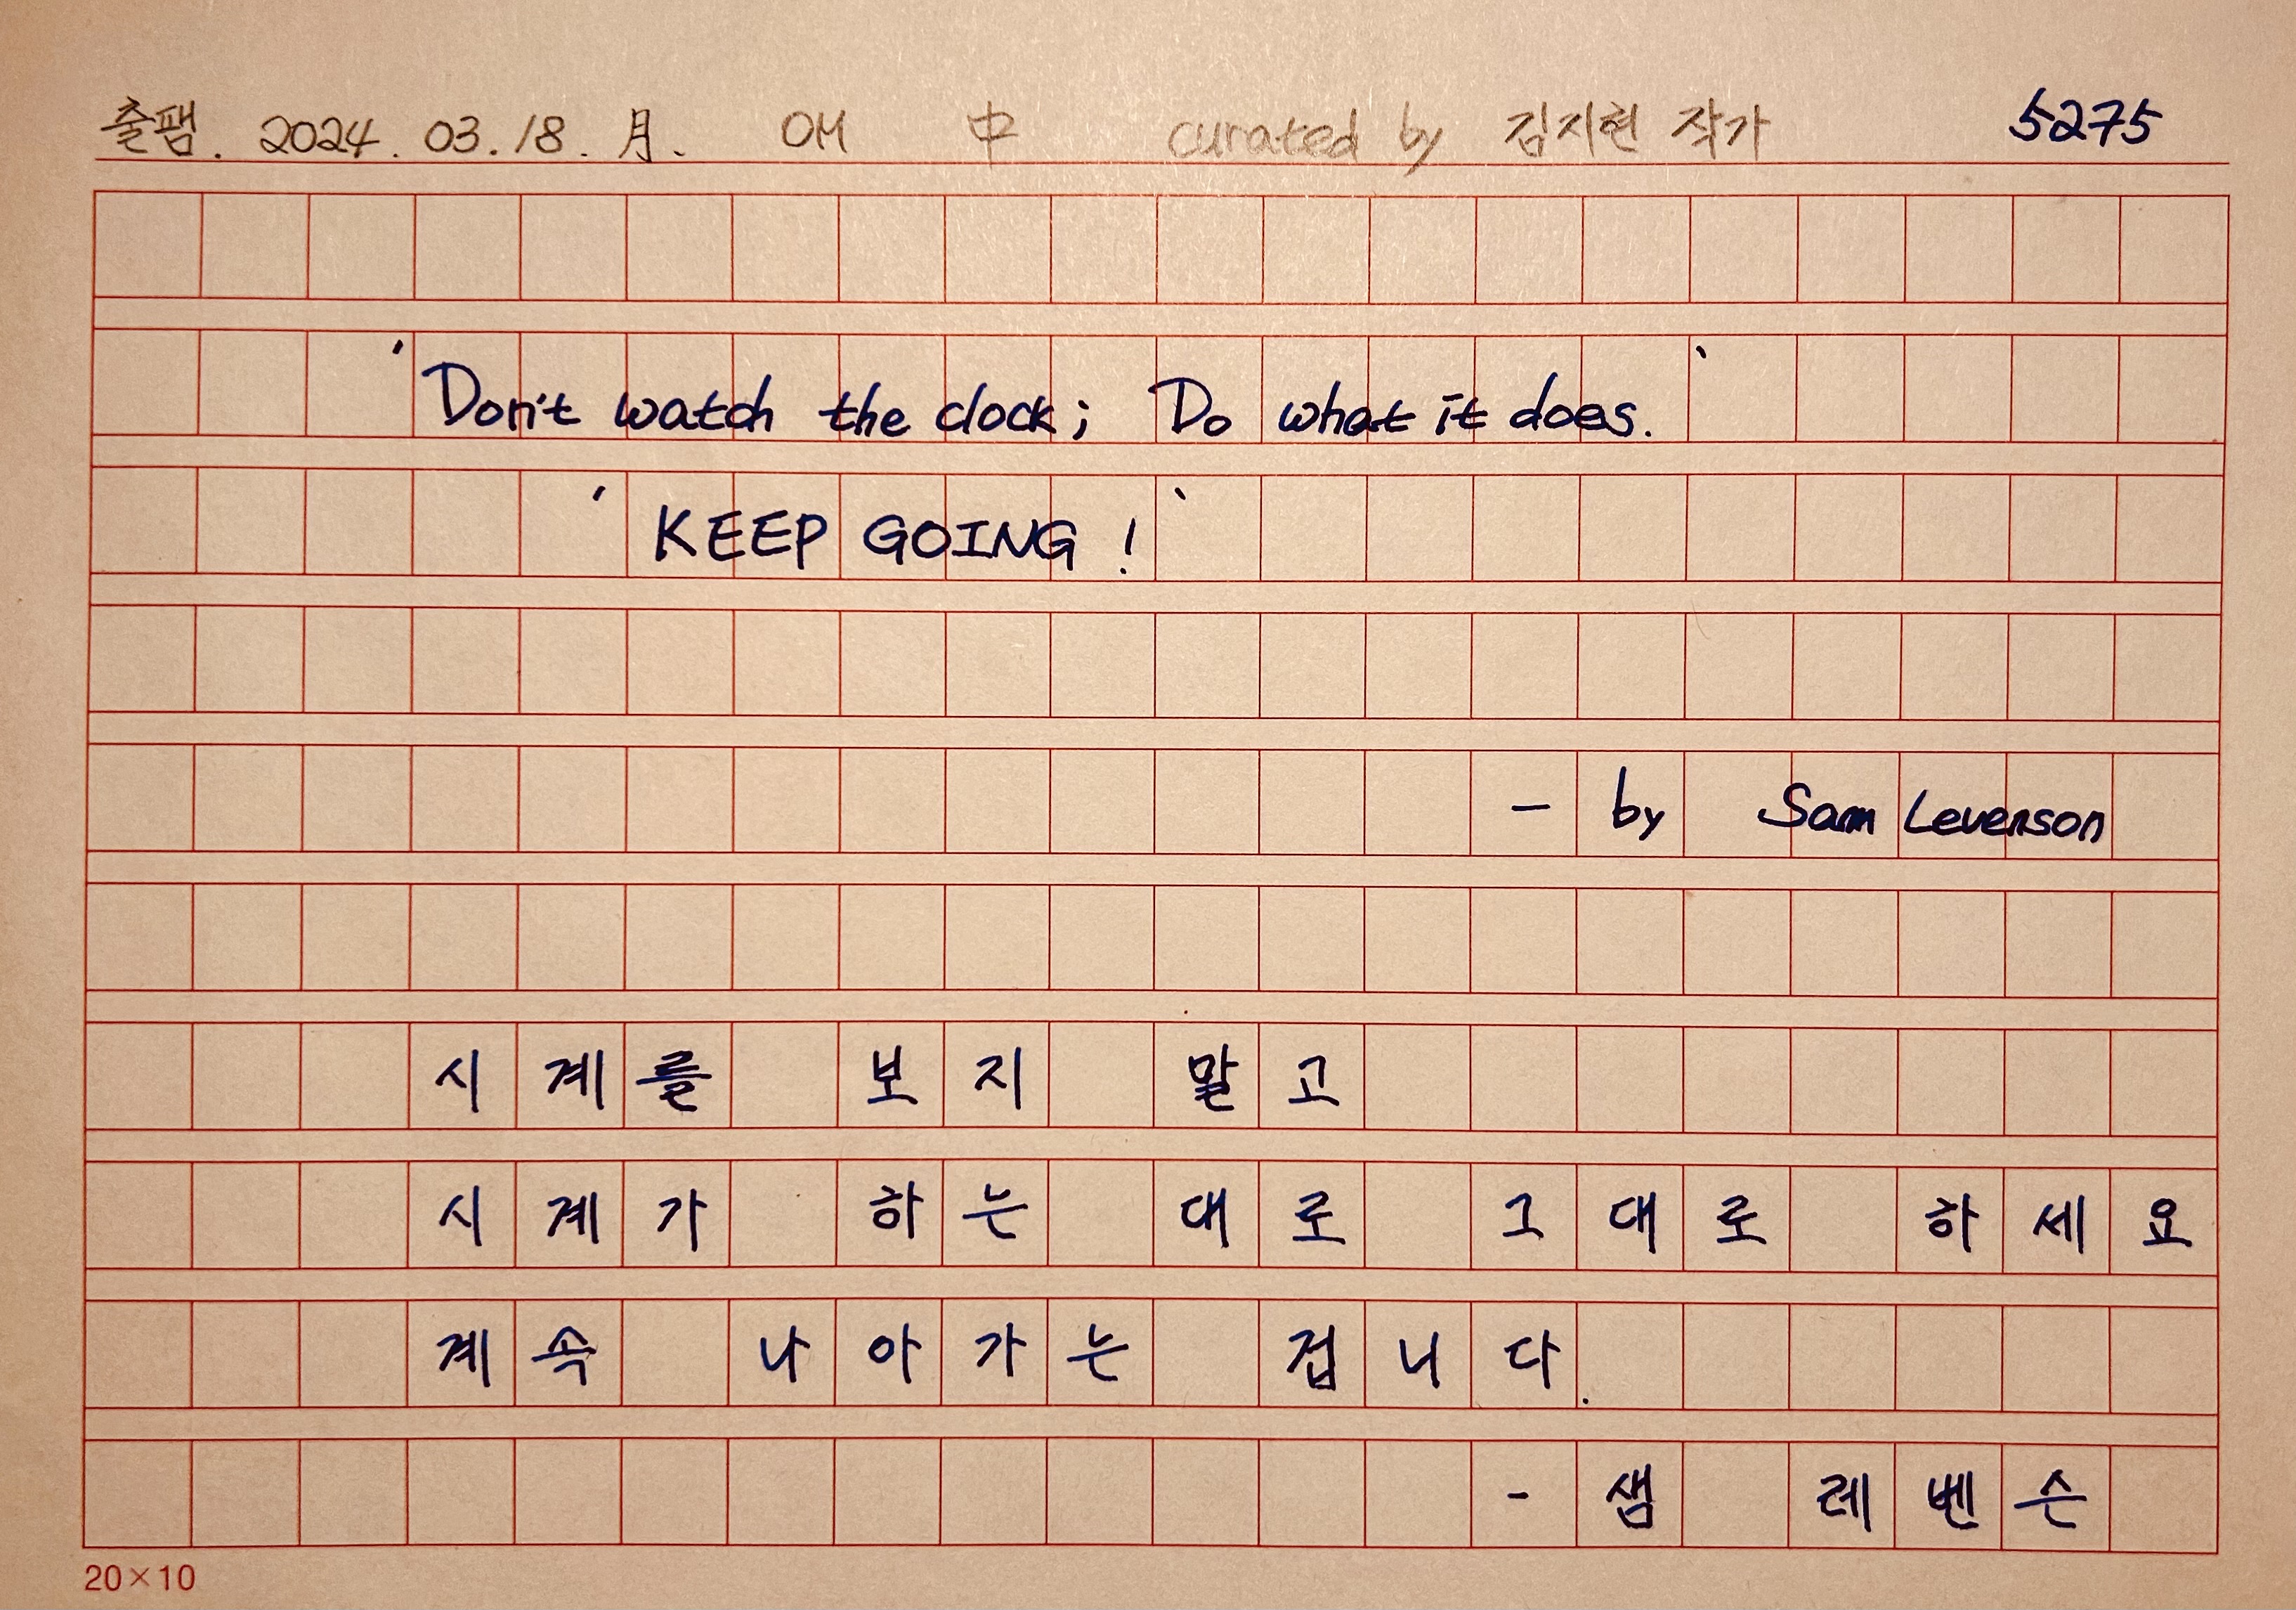 출팸. 2024. 03. 18. 月. OH 中 curated by 김지현 작가 5275
'Don't watch the clock; Do what it does.'
'KEEP GOING!'
- by Sam Levenson
시계를 보지 말고
시계가 하는 대로 그대로 하세요
계속 나아가는 겁니다.
- 샘 레벤슨
20×10